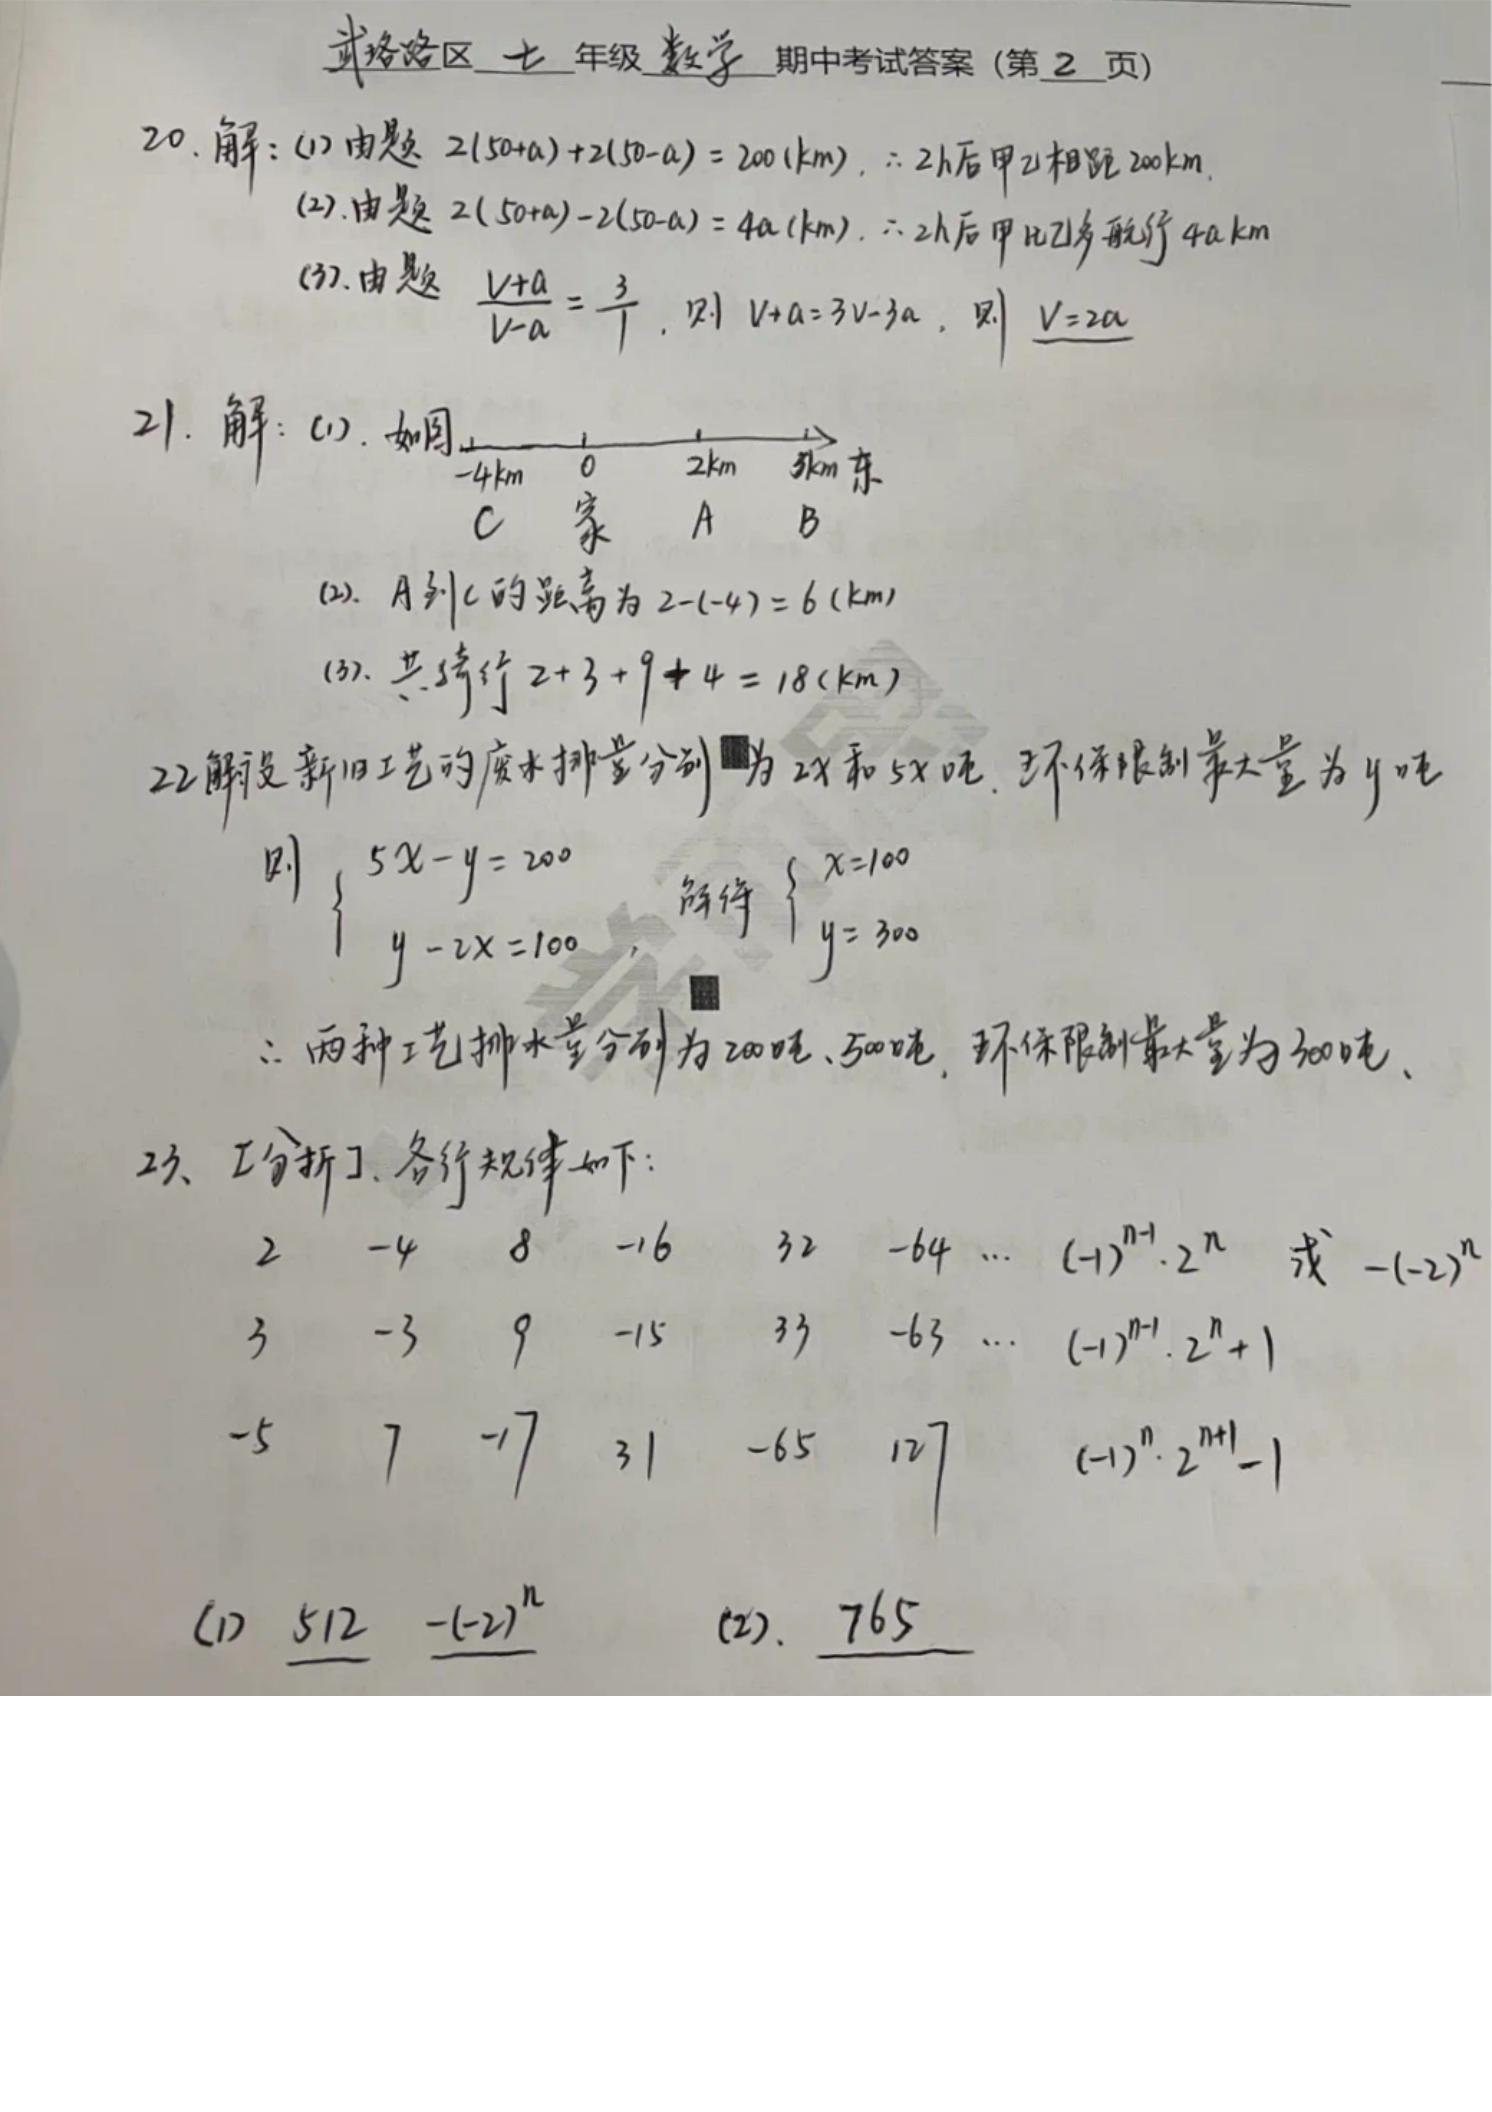 武珞路区 七 年级 数学 期中考试答案（第 2 页）
20. 解：(1) 由题 2(50+a)+2(50-a)=200(km). ∴2h后甲乙相距200km.
(2).由题 2(50+a)-2(50-a)=4a(km). ∴2h后甲比乙多航行4akm
(3).由题 (V+a)/(V-a) = 3/1 , 则 V+a=3V-3a, 则 V=2a
21. 解：(1). 如图
-4km 0 2km km 东
C 家 A B
(2). A到C的距离为 2-(-4)=6(km)
(3). 共骑行 2+3+9+4=18(km)
22 解设新旧工艺的废水排量分别 为 2x 和 5x 吨. 环保限制最大量为 y 吨
则 { 5x-y=200
y-2x=100 , 解得 { x=100
y=300
∴ 两种工艺排水量分别为200吨、500吨. 环保限制最大量为300吨、
23、[分析]、各行规律如下：
2 -4 8 -16 32 -64 … (-1)^{n-1}·2^n 或 -(-2)^n
3 -3 9 -15 33 -63 … (-1)^{n-1}·2^n+1
-5 7 -17 31 -65 127 (-1)^n·2^{n+1}-1
(1) 512 -(-2)^n (2). 765